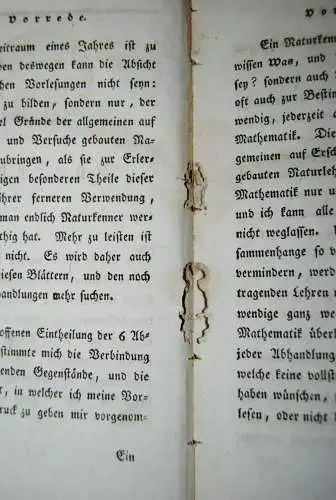 Vorrede.
eitraum eines Jahres ist zu
ben deswegen kann die Absicht
chen Vorlesungen nicht seyn:
zu bilden, sondern nur, der
el Gründe der allgemeinen auf
und Versuche gebauten Na-
ubringen, als sie zur Erler-
igen besonderen Theile dieser
ihrer ferneren Verwendung,
man endlich Naturkenner wer-
thig hat. Mehr zu leisten ist
nicht. Es wird daher auch
iesen Blättern, und den noch
handlungen mehr suchen.
offenen Eintheilung der 6 Ab-
estimmte mich die Verbindung
enden Gegenstände, und die
t, in welcher ich meine Vor-
ruck zu geben mir vorgenom-
Ein
Vor
Ein Naturkenner
wissen Was, und
sey? sondern auch
oft auch zur Bestim
wendig, jederzeit
Mathematik. Die
gemeinen auf Ersch
gebauten Naturleh
Mathematik nur u
und ich kann alle
nicht weglassen.
sammenhange so v
vermindern, werd
tragenden Lehren
wendige ganz we
Mathematik überl
jeder Abhandlung
welche keine vollst
haben wünschen,
lesen, oder nicht